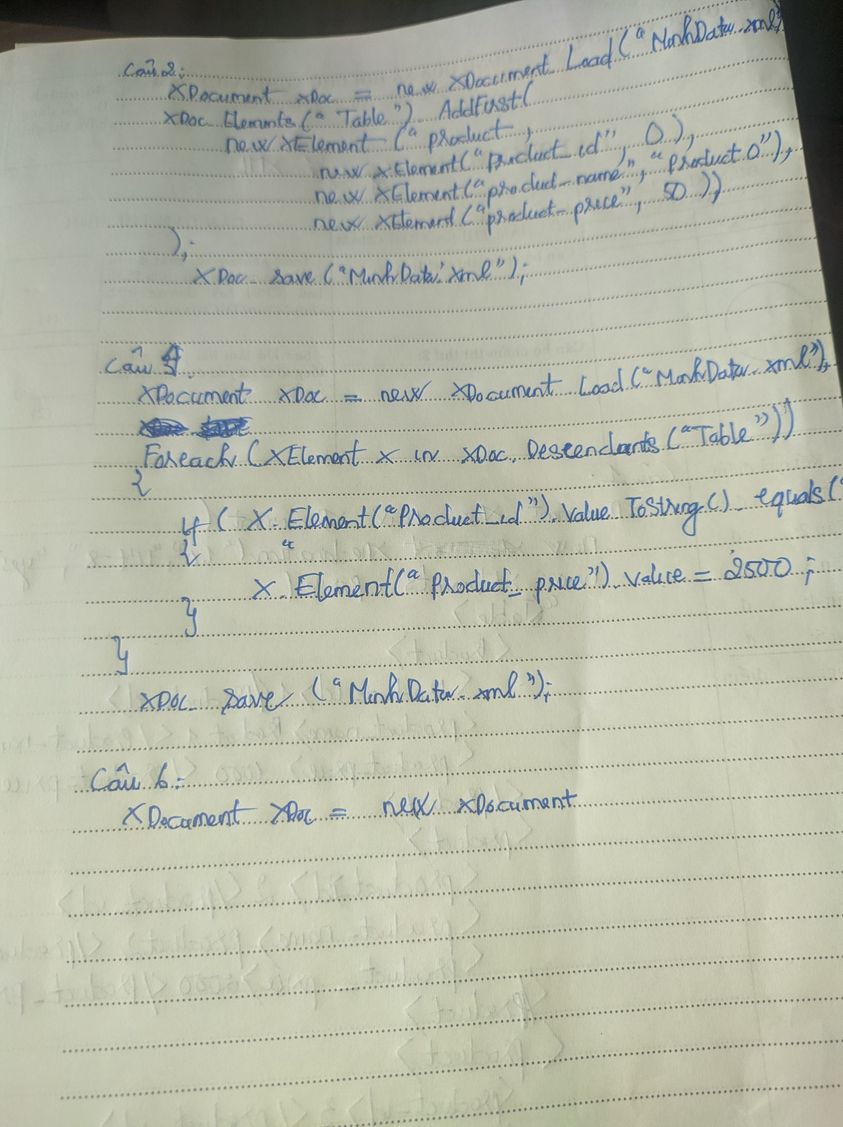 Câu 2:
XDocument xDoc = new XDocument.Load("MinhData.xml
xDoc.Elements("Table").AddFirst(
new XElement("product,
new XElement("product_id", 0),
new XElement("product_name", "product 0"),
new XElement("product_price", 50))
);
XDoc.save("MinhData.xml");
Câu
XDocument xDoc = new XDocument.Load("MinhData.xml"),
Foreach (XElement x in xDoc.Descendants("Table"))
{
if (X.Element("Product_id").Value ToString().equals("
{
X.Element("Product_price").Value = 2500;
}
}
XDoc.save("MinhData.xml");
Câu 6:
XDocument XDoc = new xDocument